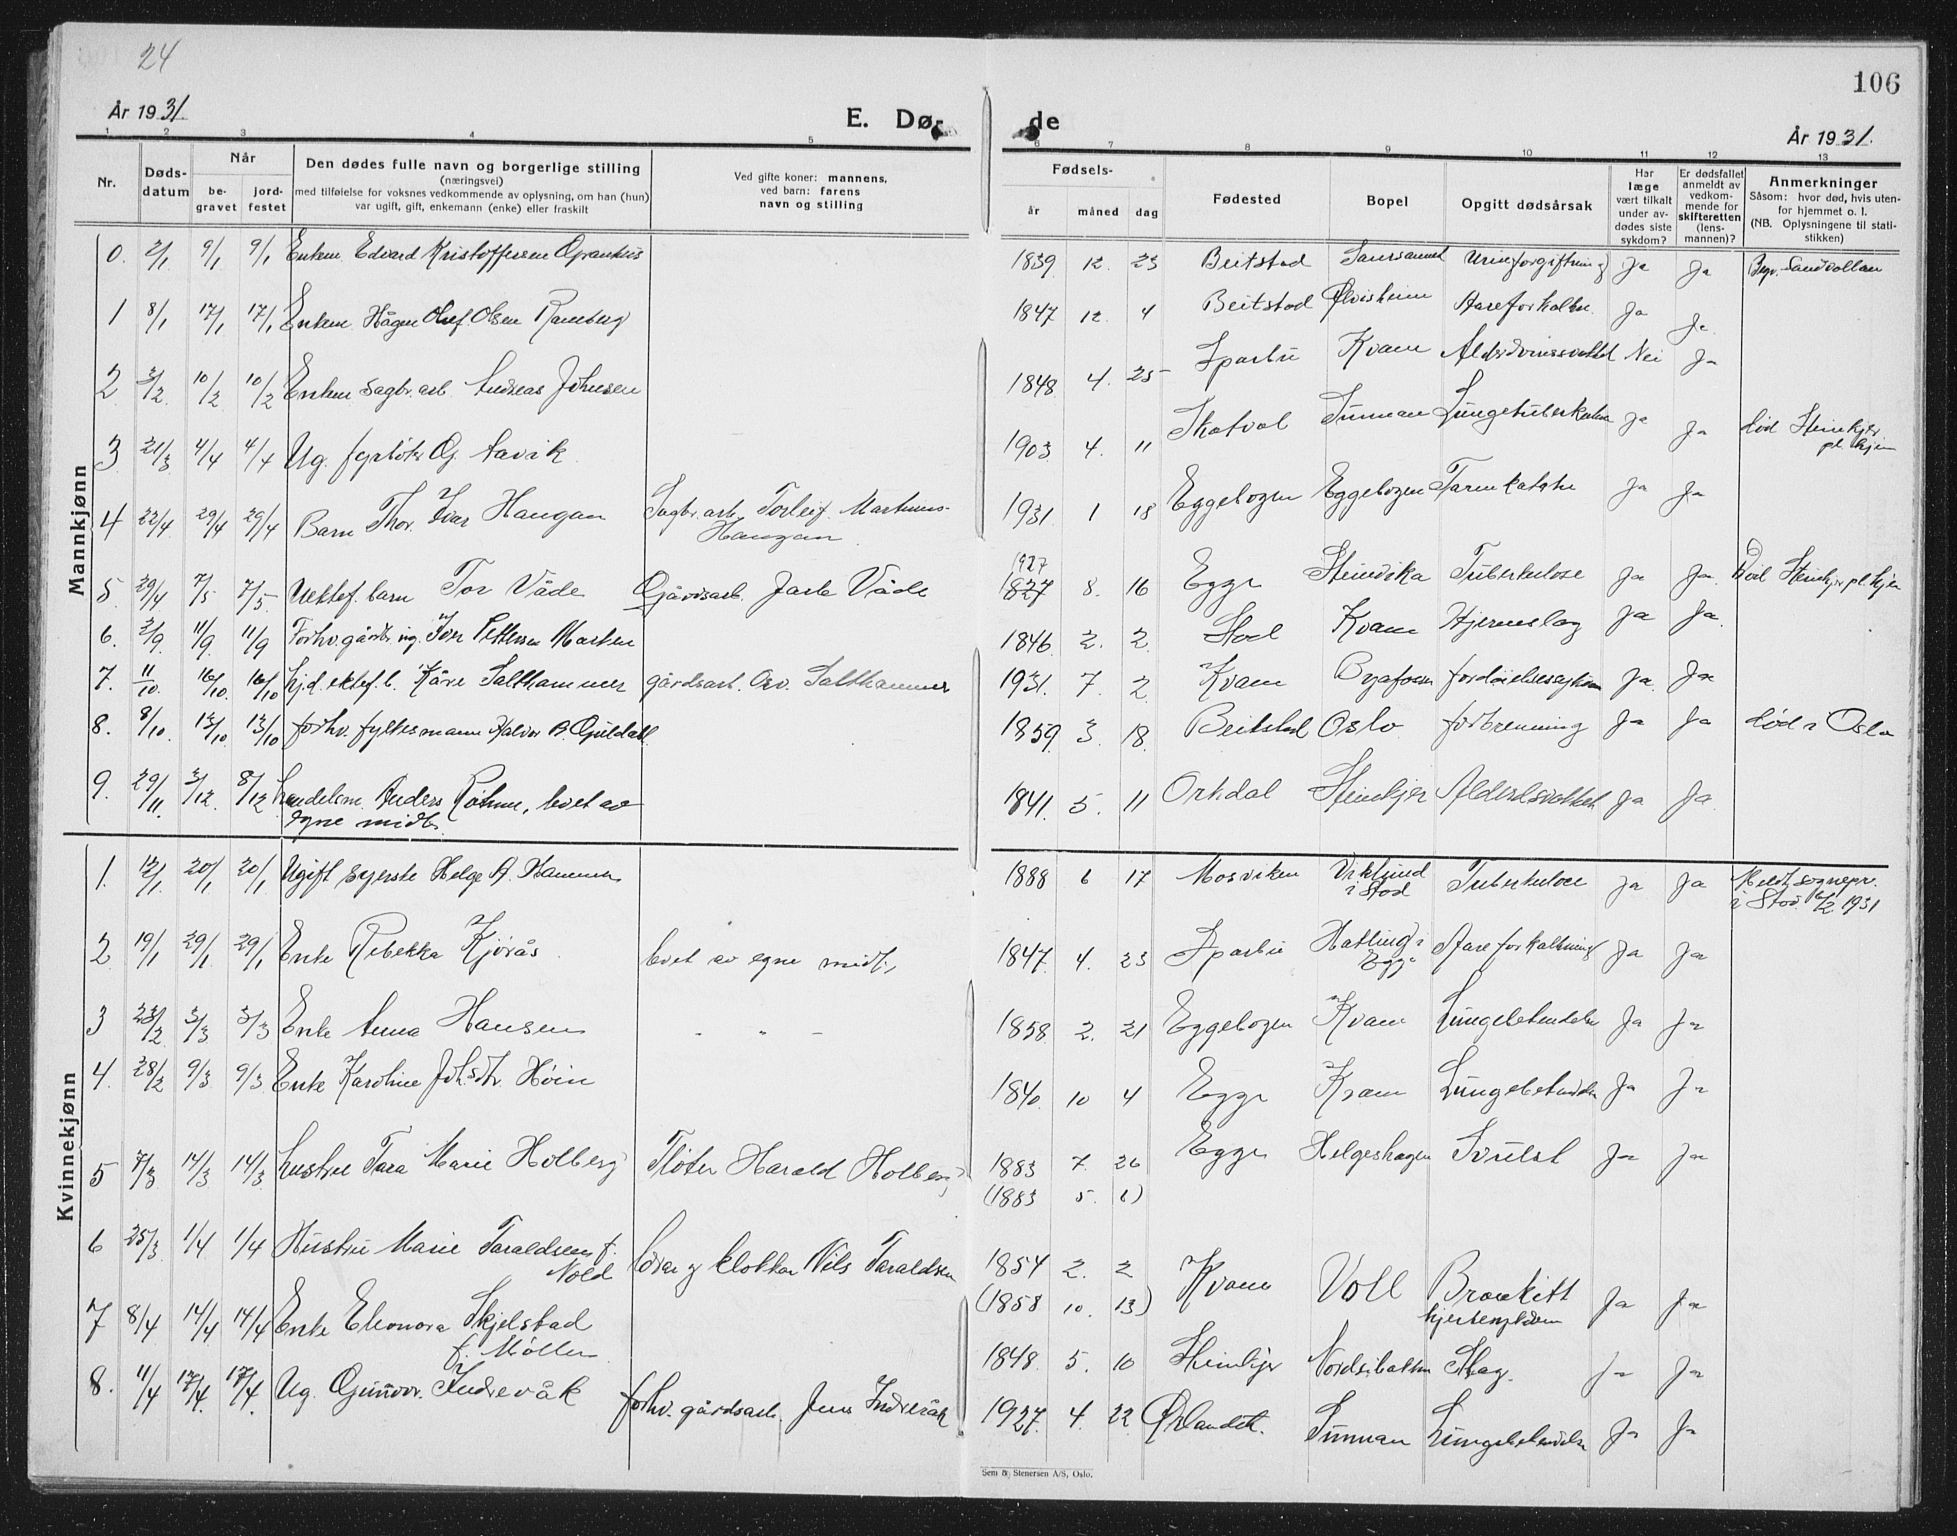 24
106
År 1931
E. Dø-
de
År 1931.
1 2 3 4 5 6 7 8 9 10 11 12 13
Nr.
Døds-
datum
Når
be-
gravet
jord-
festet
Den dødes fulle navn og borgerlige stilling
(næringsvei)
med tilføielse for voksnes vedkommende av oplysning, om han (hun)
var ugift, gift, enkemann (enke) eller fraskilt
Ved gifte koner: mannens,
ved barn: farens
navn og stilling
Fødsels-
år måned dag
Fødested
Bopel
Opgitt dødsårsak
Har
læge
vært tilkalt
under av-
dødes siste
sykdom?
Er dødsfallet
anmeldt av
vedkom-
mende for
skifteretten
(lens-
mannen)?
Anmerkninger
Såsom: hvor død, hvis uten-
for hjemmet o. l.
(NB. Oplysningene til stati-
stikken)
Mannkjønn
0. 2/1 9/1 9/1 Enkem Edvard Kristoffersen 1839 12. 23 Beitstad Ja Ja Sandvollan
1 8/1 17/1 17/1 Enkem Hågen Oluf Olsen Ramberg 1847 12. 4 Beitstad Ølvisheim Aareforkalkn. Ja Ja
2 3/2 10/2 10/2 Enkem sagbr.arb. Andreas Johnsen 1848 4. 25 Sparbu Kvam Nei Ja
3 21/3 4/4 4/4 Ug. 1903 4. 11 Skatval Sunnan Lungetuberkulose Ja Ja Død Steinkjer
pl. hjem
4 22/4 29/4 29/4 Barn Thor Ivar Haugan Sagbr.arb. Torleif Martinus-
Haugan 1931 1 18 Eggebogen Eggebogen Tarmkatahr Ja Ja
5. 29/4 7/5 7/5 Uektef. barn Tor Våde Gårdsarb. Jarle Våde 1927
1827 8. 16 Egge Steinvika Tuberkulose Ja Ja Død Steinkjer pl.hjem
6. 2/9 11/9 11/9 Forhv. gårdbr. ug. Iver Pettersen 1846 2. 2. Stod Kvam Hjerneslag Ja Ja
7. 11/10 16/10 16/10 hj.d. ektef. b. Kåre Salthammer gårdsarb. Osv. Salthammer 1931. 7. 2 Kvam Byafossen Ja Ja
8. 8/10. 13/10 13/10 forhv. fylkesmann Halvor B. Guldahl 1859 3. 18. Beitstad Oslo forbrenning Ja Ja død i Oslo
9. 29/11. 3/12 8/12 handelsm. Anders levet av
egne midl. 1841. 5. 11 Orkdal Steinkjer Ja Ja
Kvinnekjønn
1. 12/1 20/1 20/1 Ugift syerske Helge A. Hammer 1888 6 17 Mosviken Viklund
i Stod Tuberkulose Ja Ja Meldt sognepr.
i Stod 6/2 1931
2 19/1 29/1 29/1 Enke Rebekka Kjørås levet av egne midl. 1847. 4. 23 Sparbu Hatling i
Egge Aareforkalkning Ja Ja
3 23/2 3/3 3/3 Enke Anna Hansen - " - 1858 2. 21 Eggebogen Kvam Lungebetendelse Ja Ja
4. 28/2 9/3 9/3 Enke Karoline Johsdtr. Høin 1840. 10 4 Egge Kvam Lungebetendelse Ja Ja
5 7/3 14/3 14/3 hustru Tara Marie Holberg Fløter Harald Holberg 1883 7. 26 Egge Helgeshagen Svulst Ja Ja
(1883 5. 6)
6 25/3 1/4 1/4 Hustru Marie Taraldsen f.
Nold Lærer og klokker Nils Taraldsen 1854 2. 2
(1853 10. 13) Kvam Voll Bronkitt
Ja Ja
7 8/4 14/4 14/4 Enke Eleonora Skjelstad
f. Møller 1848. 5. 10 Steinkjer Slag. Ja Ja
8. 11/4 17/4. 17/4. Ug. Gunvor Indrevåk forhv. gårdsarb. Jens Indrevåk 1927. 4. 22 Ørlandet. Sunnan Lungebetendelse Ja Ja
Sem & Stenersen A/S, Oslo.